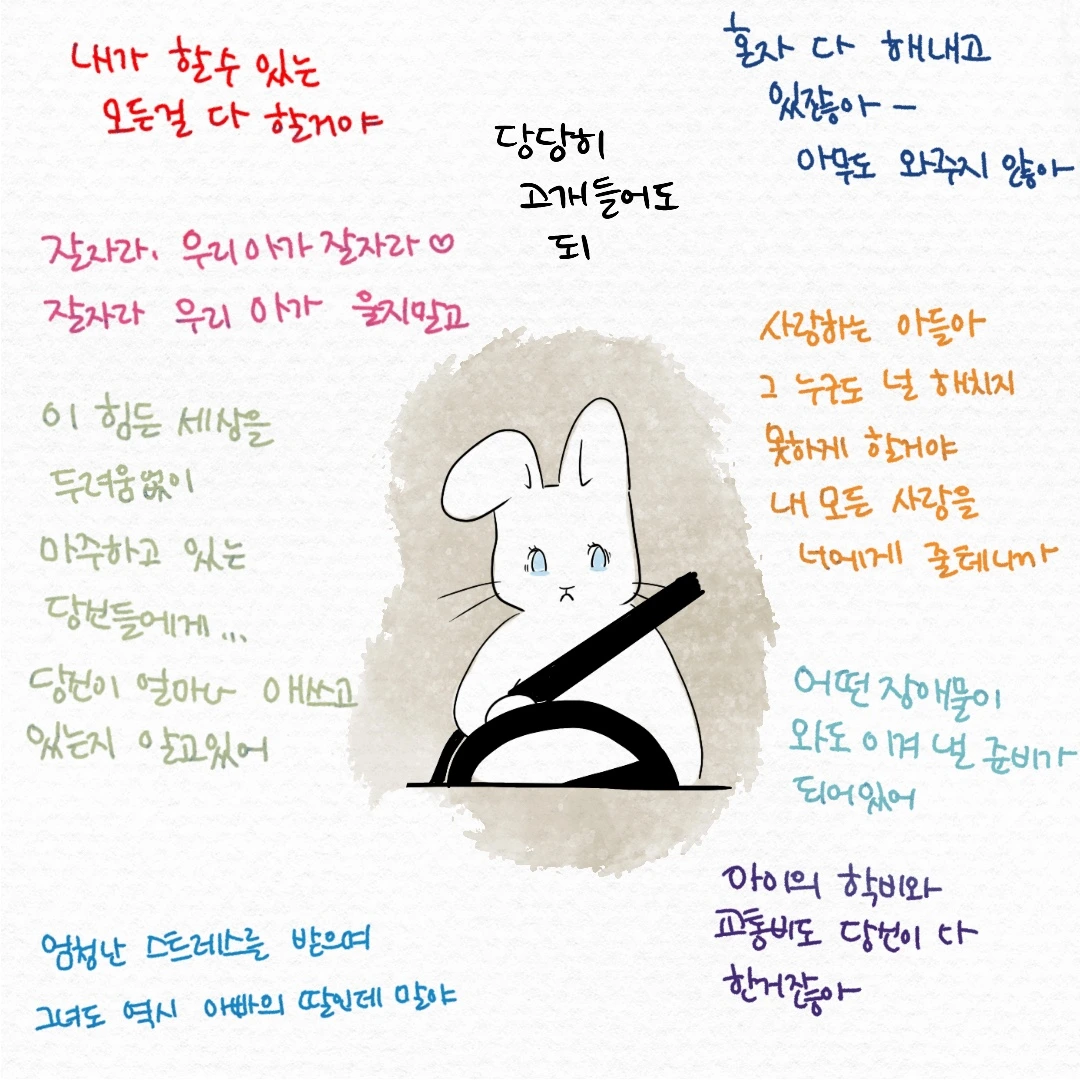 내가 할수 있는
모든걸 다 할거야
당당히
고개들어도
되
혼자 다 해내고
있잖아 -
아무도 와주지 않아
잘자라. 우리아가 잘자라♡
잘자라 우리 아가 울지말고
사랑하는 아들아
그 누구도 널 해치지
못하게 할거야
내 모든 사랑을
너에게 줄테니까
이 힘든 세상을
두려움없이
마주하고 있는
당신들에게...
당신이 얼마나 애쓰고
있는지 알고있어
어떤 장애물이
와도 이겨 낼 준비가
되어있어
아이의 학비와
교통비도 당신이 다
한거잖아
엄청난 스트레스를 받으며
그녀도 역시 아빠의 딸인데 말야